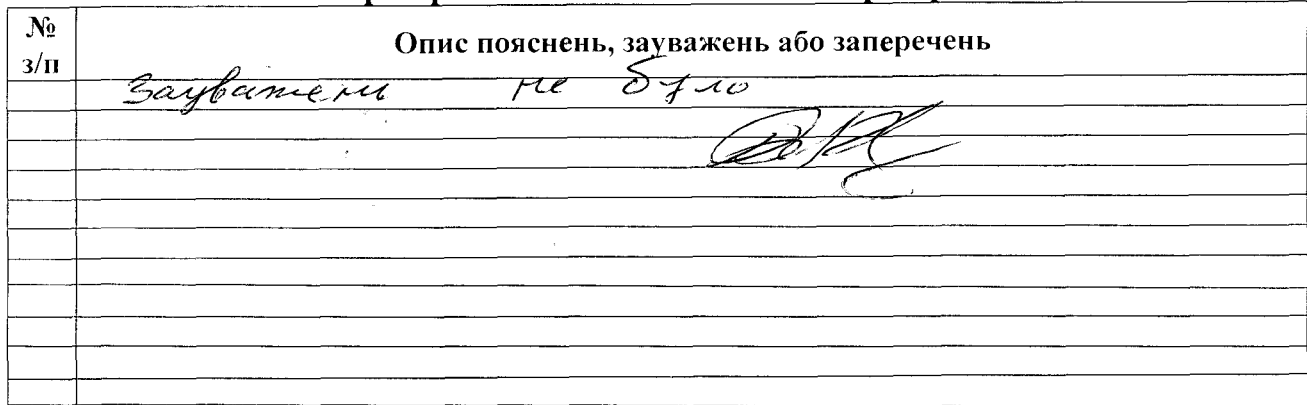 №
з/п
Опис пояснень, зауважень або заперечень
Зауважень не було